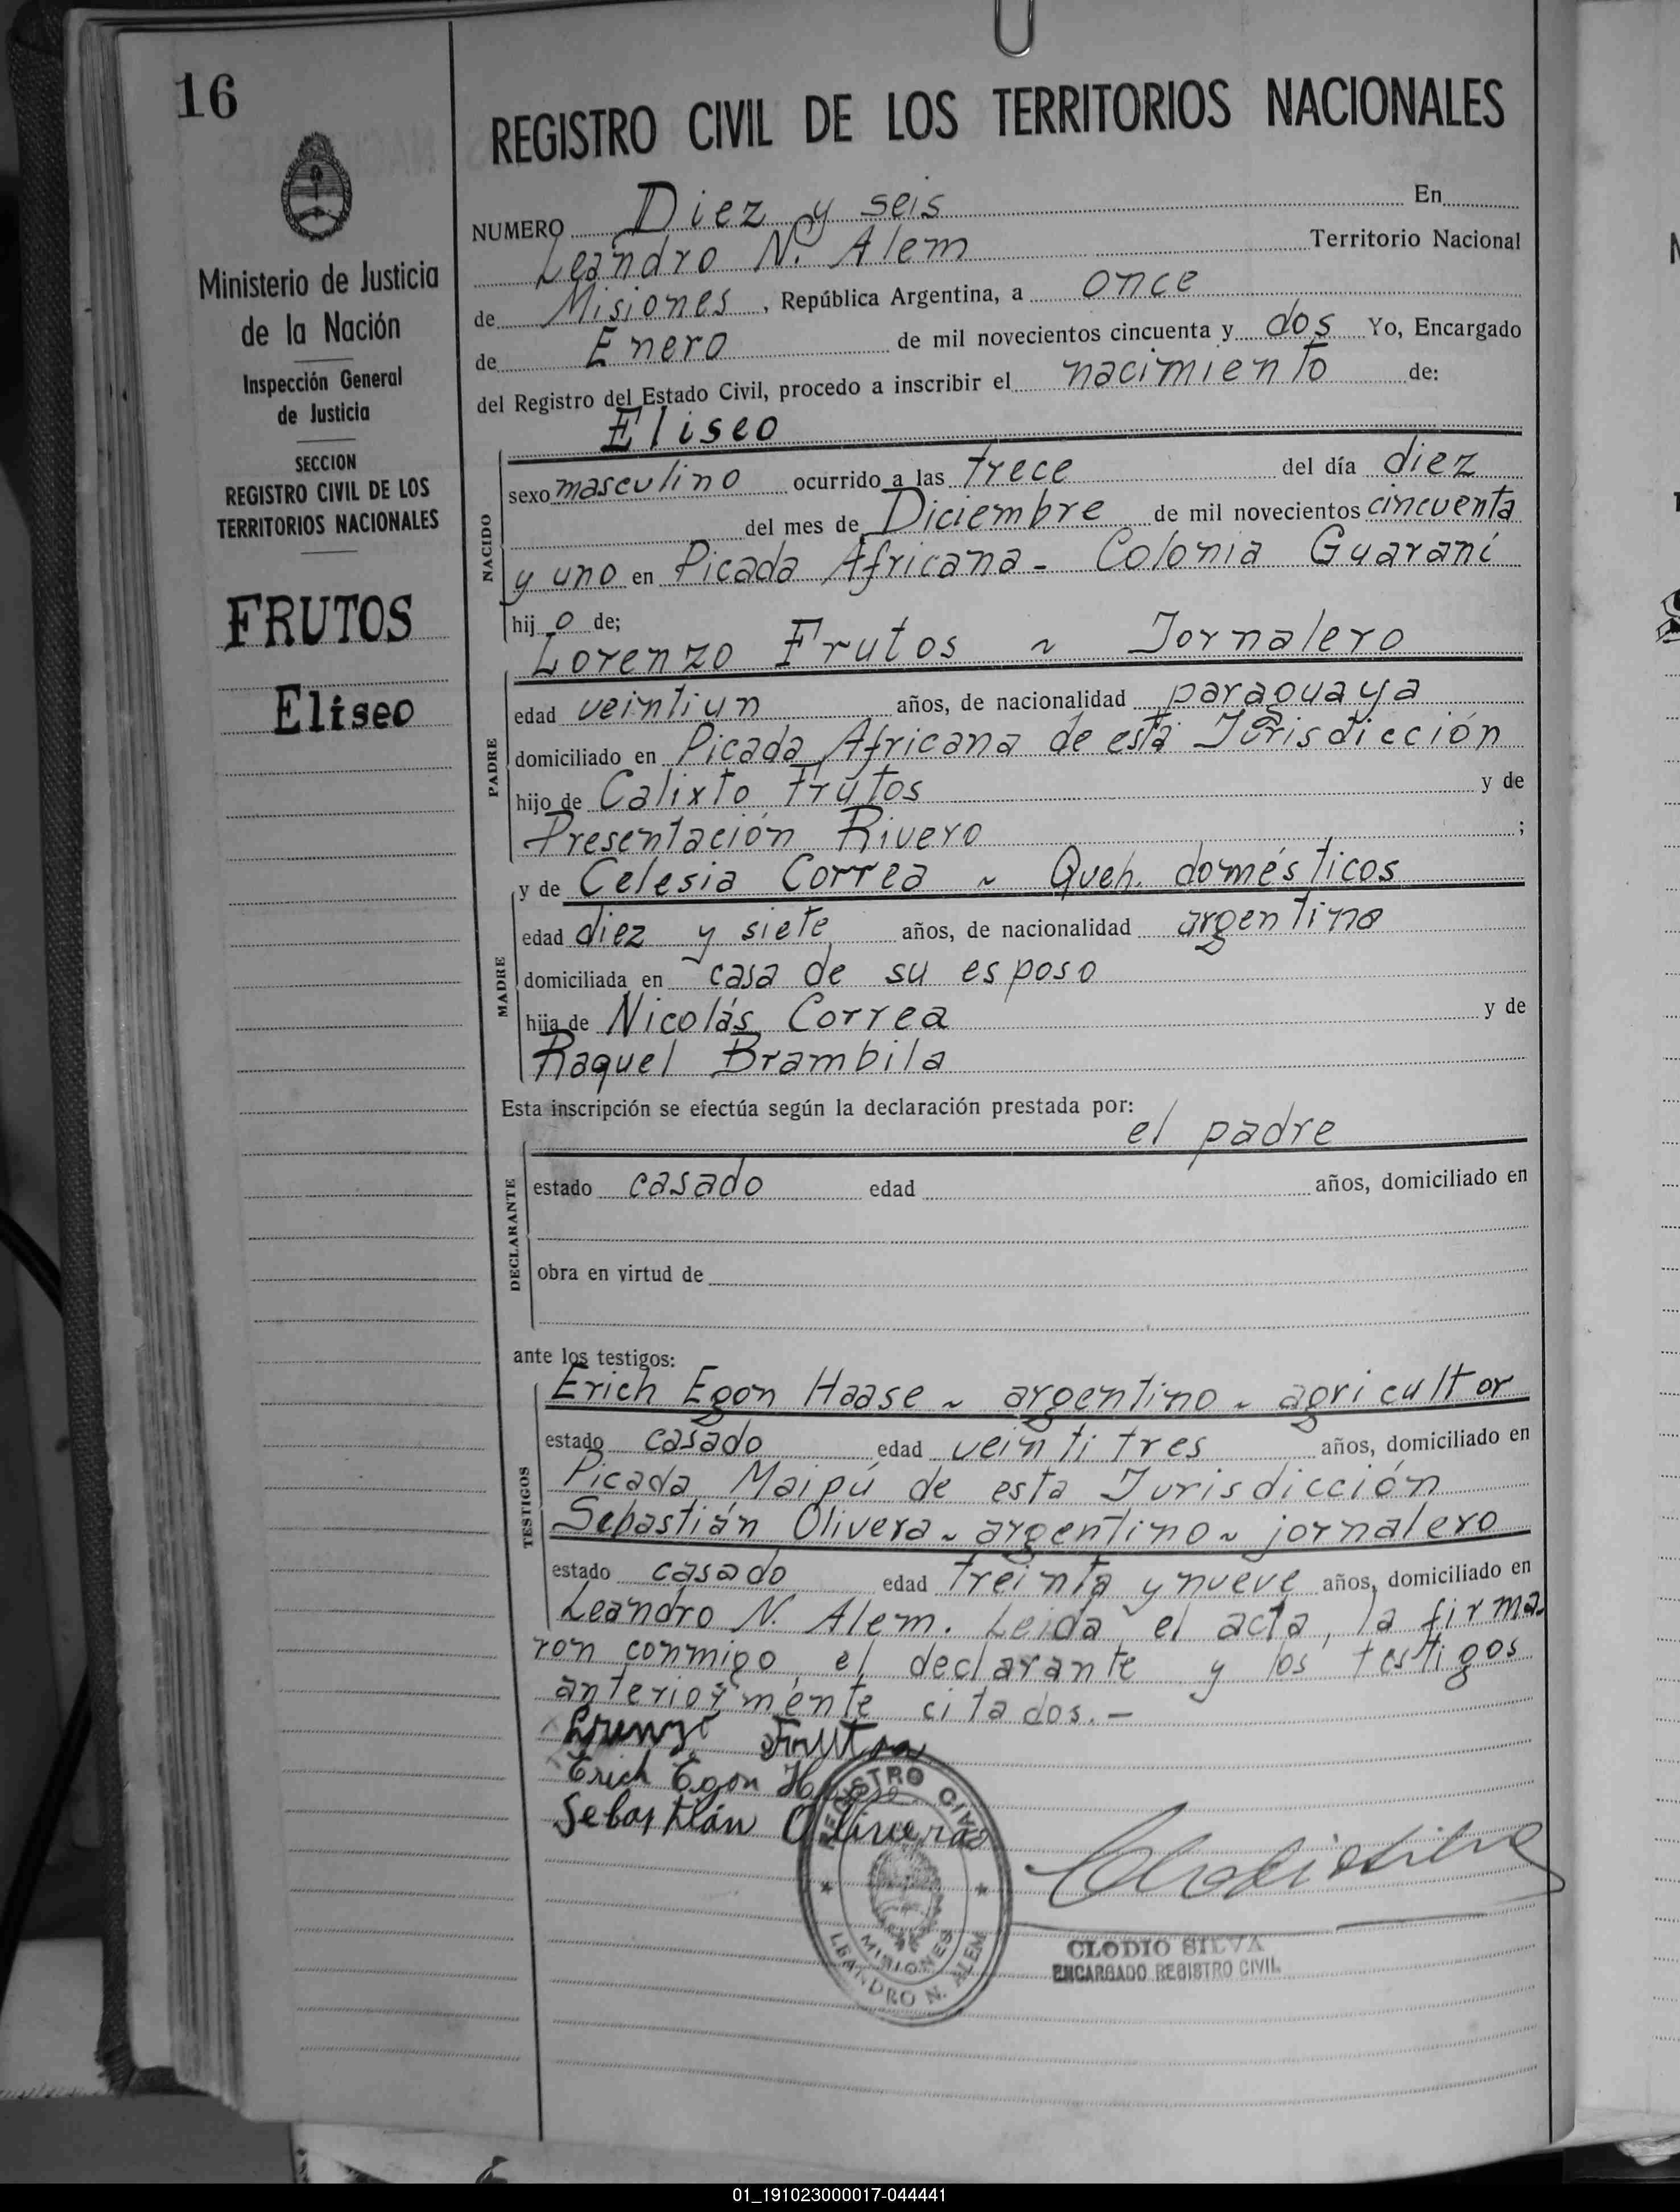 16
Ministerio de Justicia
de la Nación
Inspección General
de Justicia
SECCION
REGISTRO CIVIL DE LOS
TERRITORIOS NACIONALES
FRUTOS
Eliseo
REGISTRO CIVIL DE LOS TERRITORIOS NACIONALES
NUMERO Diez y seis En
Leandro N. Alem Territorio Nacional
de Misiones, República Argentina, a once
de Enero de mil novecientos cincuenta y dos Yo, Encargado
del Registro del Estado Civil, procedo a inscribir el nacimiento de:
Eliseo
NACIDO
sexo masculino ocurrido a las trece del día diez
del mes de Diciembre de mil novecientos cincuenta
y uno en Picada Africana - Colonia Guaraní
hij o de;
Lorenzo Frutos ~ Jornalero
PADRE
edad veintiun años, de nacionalidad paraguaya
domiciliado en Picada Africana de esta Jurisdicción
hijo de Calixto Frutos y de
Presentación Rivero ;
y de Celesia Correa ~ Queh. domésticos
MADRE
edad diez y siete años, de nacionalidad argentina
domiciliada en casa de su esposo
hija de Nicolás Correa y de
Raquel Brambila
Esta inscripción se efectúa según la declaración prestada por:
el padre
DECLARANTE
estado casado edad años, domiciliado en
obra en virtud de
ante los testigos:
Erich Egon Haase ~ argentino ~ agricultor
TESTIGOS
estado casado edad veinti tres años, domiciliado en
Picada Maipú de esta Jurisdicción
Sebastián Olivera ~ argentino ~ jornalero
estado casado edad treinta y nueve años, domiciliado en
Leandro N. Alem. Leida el acta, la firma-
ron conmigo, el declarante y los testigos
anteriormente citados.-
Lorenzo Frutos
Erich Egon Haase
Sebastián Olivera
REGISTRO CIVIL
MISIONES
LEANDRO N. ALEM
Clodio Silva
CLODIO SILVA
ENCARGADO REGISTRO CIVIL
01_191023000017-044441